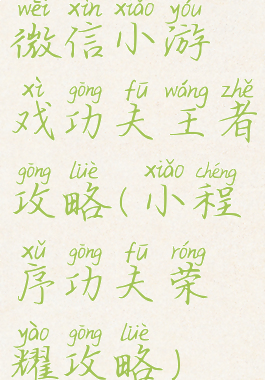 wēi xìn xiǎo yóu
微信小游
xì gōng fū wáng zhě
戏功夫王者
gōng lüè xiǎo chéng
攻略(小程
xǔ gōng fū róng
序功夫荣
yào gōng lüè
耀攻略)